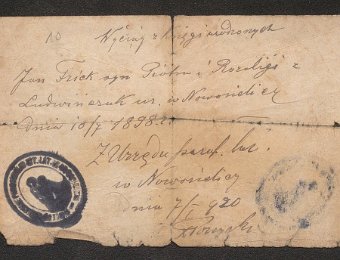 10
Wyciąg z księgi urodzonych
Jan Frick syn Piotra i Rozalji z
Ludwiniak ur. w Nowosielicy
dnia 10/I 1898 r.
Z Urzędu paraf. łać.
w Nowosielicy
dnia 7/I 920